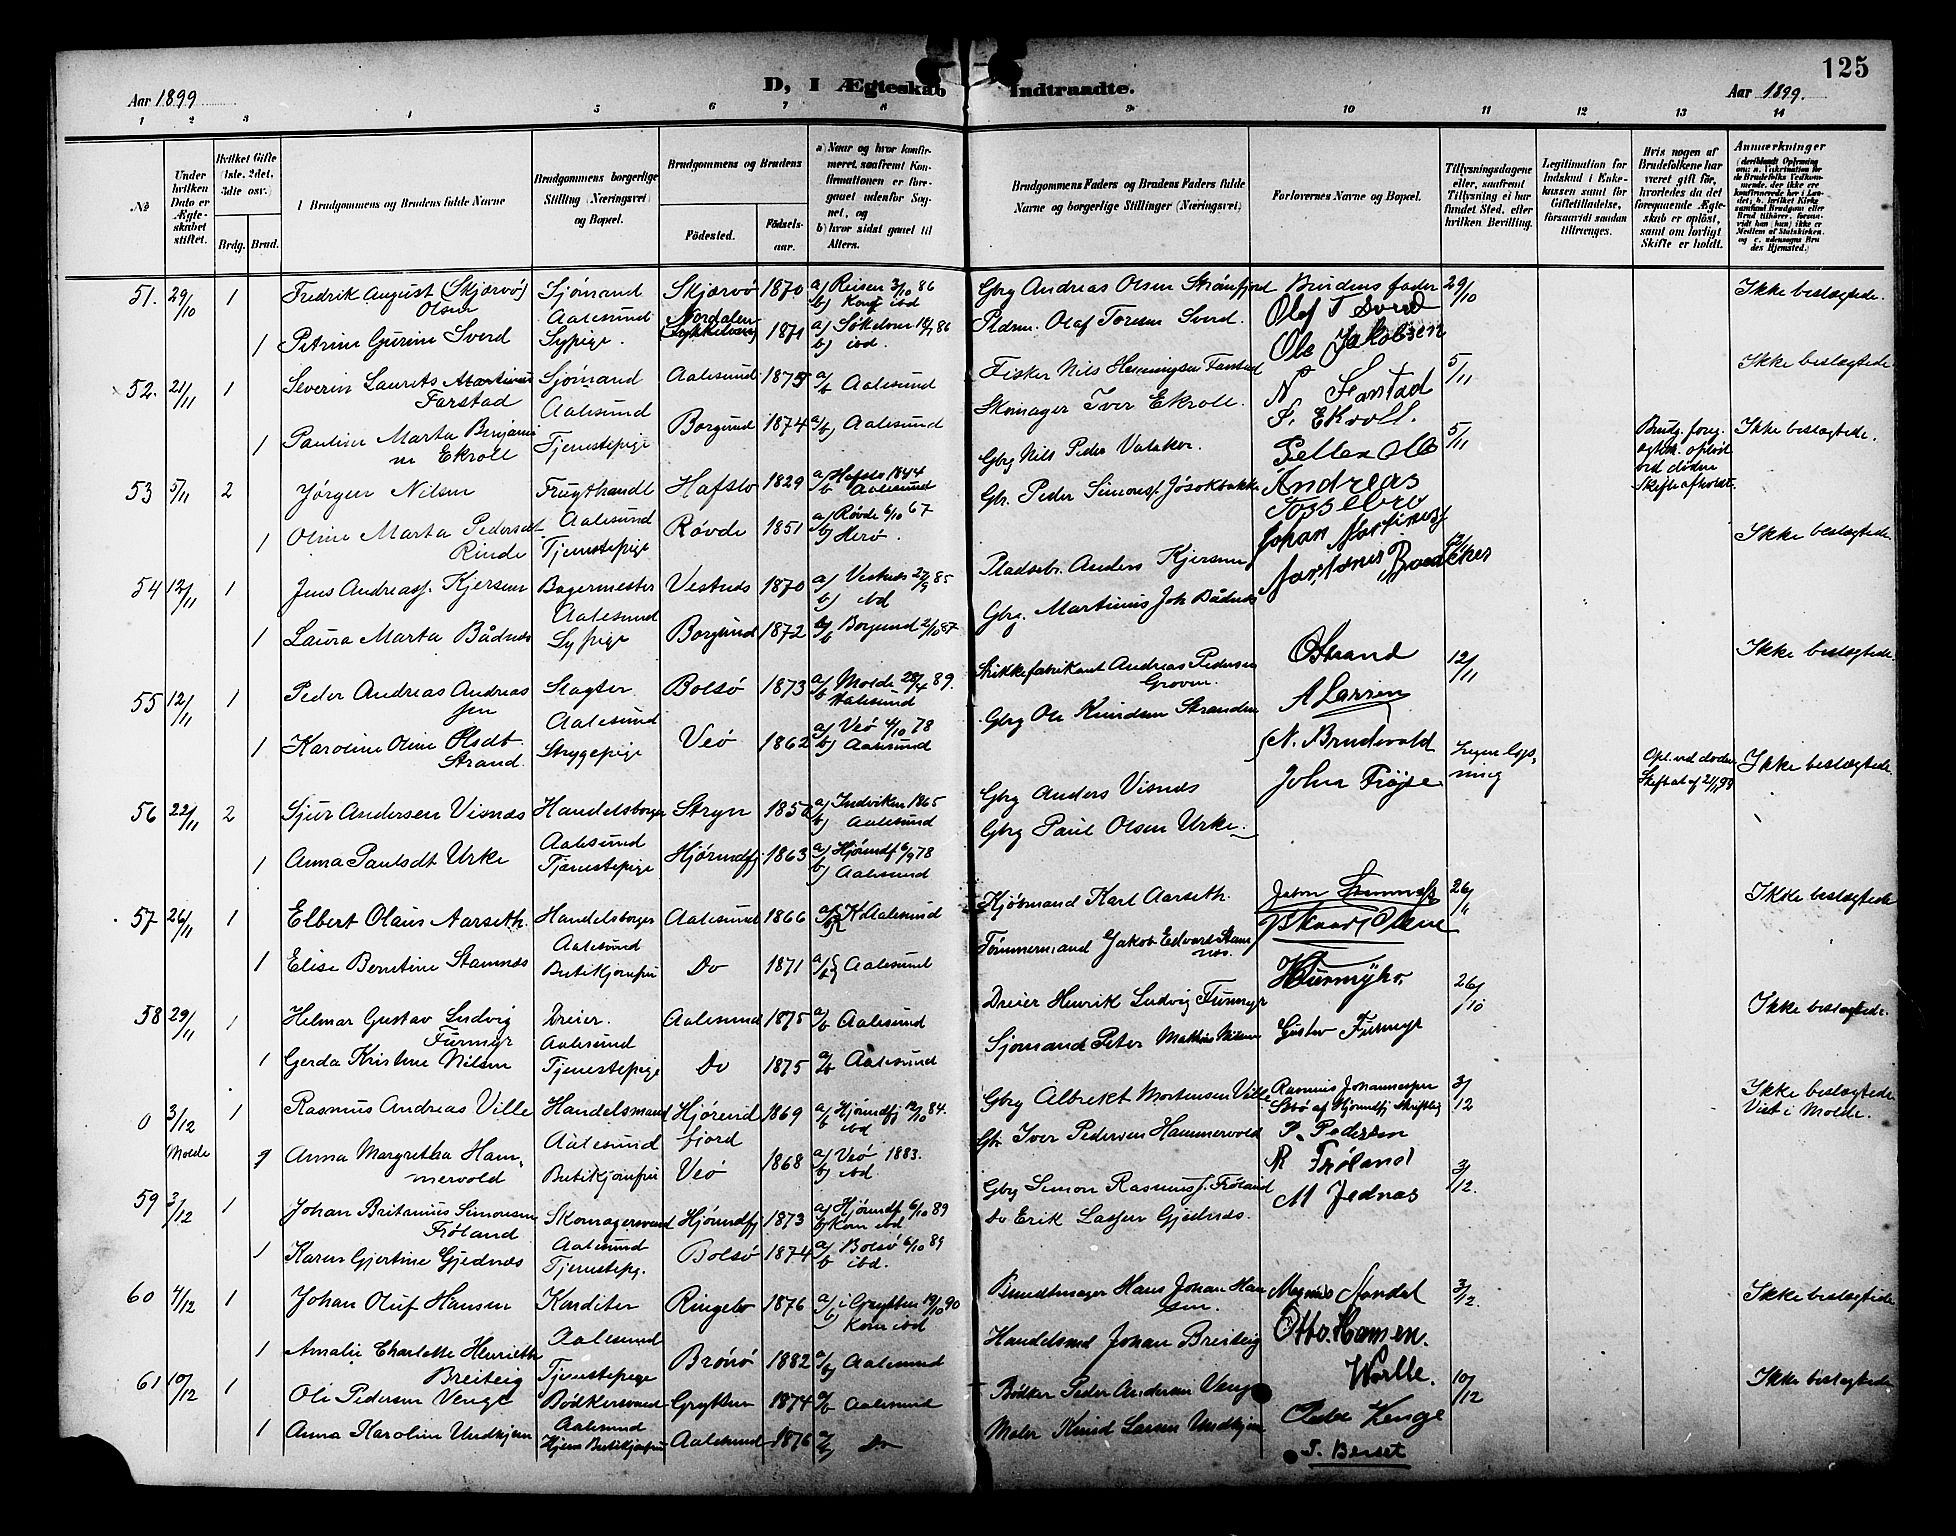 125
D, I Ægteskab Indtraadte.
Aar 1899
Aar 1899.
1 2 3 4 5 6 7 8 9 10 11 12 13 14
No
Under hvilken Dato er Ægteskabet stiftet.
Hvilket Gifte (1ste, 2det, 3die osv.)
Brdg. Brud.
Brudgommens og Brudens fulde Navne
Brudgommens borgerlige Stilling (Næringsvei) og Bopæl.
Brudgommens og Brudens
Födested.
Födselsaar.
a) Naar og hvor konfirmeret, saafremt Konfirmationen er foregaaet udenfor Sognet, og
b) hvor sidst gaaet til Alters.
Brudgommens Faders og Brudens Faders fulde Navne og borgerlige Stillinger (Næringsvei)
Forlovernes Navne og Bopæl.
Tillysningsdagene eller, saafremt Tillysning ei har fundet Sted, efter hvilken Bevilling.
Legitimation for Indskud i Enkekassen samt for Giftetilladelse, forsaavidt saadan tiltrænges.
Hvis nogen af Brudefolkene har været gift för, hvorledes da det foregaaende Ægteskab er oplöst, samt om lovligt Skifte er holdt.
Anmærkninger
51. 29/10 1 Fredrik August (Skjærvö) Olsen Sjömand Aalesund Skjærvö 1870 a) Reisen 3/10 86 b) Konf ibd Gbrg Andreas Olsen Strömfjord Brudens fader 29/10 Ikke beslægtede.
1 Petrine Gurine Sverd Sypige. Nordalen 1871 a) Søkelven 18/7 86 b) ibd. Pldsm. Olaf Toresen Sverd. Olaf T Sverd Ole Jakobsen
52. 21/11 1 Severin Laurits Martinus Farstad Sjømand Aalesund Aalesund 1875 a/b Aalesund Fisker Nils Henningsen Farstad N Farstad 5/11 Ikke beslægtede
1 Pauline Marta Benjamine Ekroll Tjenestepige Borgund 1874 a/b) Aalesund Skomager Iver Ekroll. I. Ekroll.
53 5/11 2 Jørgen Nilsen Frugthandl Aalesund Hafslo 1829 a/ Hafslo 1844 b Aalesund Gbrg Nils Peder Valaker. 5/11 Brudg. foreg. ægtesk. opløst ved døden Skifte afholdt. Ikke beslægtede.
1 Oline Marta Pedersdt. Rinde Tjenestepige Røvde 1851 a/ Røvde 6/10 67 b) Herö. Gbr. Peder Simonsf. Andreas
54 12/11 1 Jens Andreasf. Kjersem Bagermester Aalesund Vestnes 1870 a) Vestnes 27/9 85 b) ibd Pladsebr. Anders Kjersem Johan 12/11 Ikke beslægtede
1 Laura Marta Bådnes Sypige Borgund 1872 a/b Borgund 2/10 87 Gbrg. Martinus Joh Bådnes
55 12/11 1 Peder Andreas Andreassen Slagter Aalesund Bolsø 1873 a/ Molde 28/4 89. b Aalesund Strikkefabrikant Andreas Pedersen Groven O Strand 12/11 Ikke beslægtede
1 Karoline Oline Olsdt. Strand. Strygepige Veö 1862 a/ Veö 4/10 78 b) Aalesund Gbrg Ole Knudsen Stranden A Larsen
56 22/11 2 Sjur Andersen Visnes Handelsborger Aalesund Stryn 1850 a/ Indviken 1865 b) Aalesund Gbrg Anders Visnes N. Brudevold Ingen lysning Opl. ved døden Ikke beslægtede.
1 Anna Paulsdt Urke Tjenestepige Hjörundfj 1863 a/ Hjörundf 6/9 78 b) Aalesund Gbrg Paul Olsen Urke. John Frøjse
57 26/11 1 Elbert Olaus Aarseth. Handelsborger Aalesund Aalesund 1866 Aalesund Kjøbmand Karl Aarseth. 26/11 Ikke beslægtede
1 Elise Berntine Stamnes Butikjomfru Do 1871 a/b Aalesund Tømmermand Jakob Edvard Stamnes.
58 29/11 1 Helmar Gustav Ludvig Furmyr Dreier. Aalesund Aalesund 1875 a/b Aalesund Dreier Henrik Ludvig Furmyr H Furmyhr. 26/10 Ikke beslægtede.
1 Gerda Kristine Nilsen Tjenestepige Do 1875 a/b Aalesund Sjømand Peter Mathias Nilsen Gustav Furmyr
0 3/12 Molde 1 Rasmus Andreas Ville Handelsmand Aalesund Hjörundfjord 1869 a/ Hjörundfj 12/10 84. b ibd Gbrg Albrekt Mortensen Ville Rasmus Johannesen Sætø af Hjörundfj skriftlig 3/12 Ikke beslægtede Viet i Molde.
1 Anna Margretha Hammervold Butikjomfru Veö 1868 a/ Veö 1883. b) ibd. Gbr. Iver Pedersen Hammervold P. Pedersen
59 3/12 1 Johan Britanius Simonsen Frøland Skomagersvend Aalesund Hjörundfj 1873 a/ Hjörundf 6/10 89 b/ Kom ibd Gbrg Simon Rasmusf. Frøland R Frøland 3/12. 
1 Karen Gjertine Gjednæs Tjenestepg. Bolsø 1874 a/ Bolsø 6/10 89 b ibd. do Erik Lassen Gjednæs. M Jednas
60 4/12 1 Johan Oluf Hansen Konditor Aalesund Ringebo 1876 a/ i Grytten 19/10 90 b) Kom ibd Bundtmager Hans Johan Hansen. Magnus Nordal 3/12. Ikke beslægtede
1 Amalie Charlotte Henriette Breiteig Tjenestepige Brønø 1882 a/b) Aalesund Handelsmd Johan Breiteig Otto Hansen.
61 10/12 1 Ole Pedersen Venge Bødkersvend Aalesund Grytten 1874 a/b Aalesund Bødker Peder Andersen Venge Peder Venge 10/12 Ikke beslægtede
1 Anna Karoline Undhjem Hjem. Butikjomfru Aalesund 1876 a/b) Do Maler Knud Larsen Undhjem P. Berset